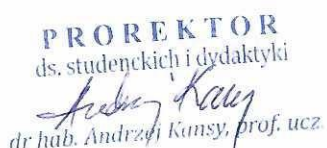 PROREKTOR
ds. studenckich i dydaktyki
Andrzej Kansy
dr hab. Andrzej Kansy, prof. ucz.